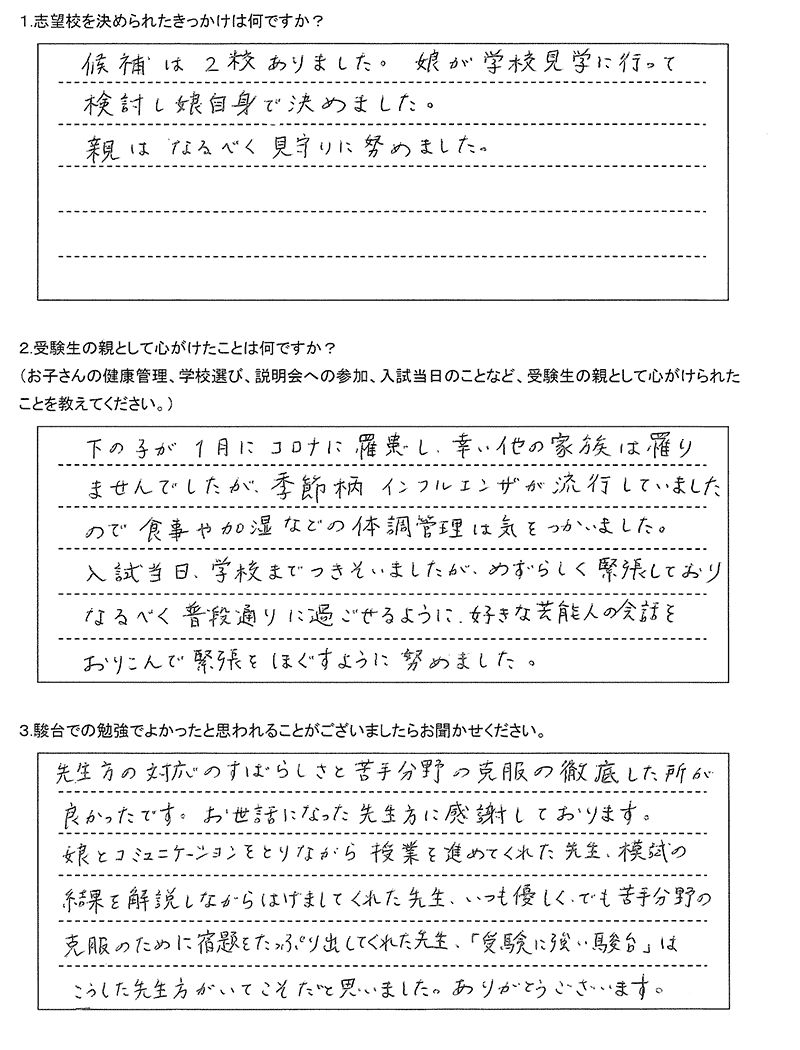 1.志望校を決められたきっかけは何ですか？
候補は2校ありました。娘が学校見学に行って
検討し娘自身で決めました。
親はなるべく見守りに努めました。
2.受験生の親として心がけたことは何ですか？
（お子さんの健康管理、学校選び、説明会への参加、入試当日のことなど、受験生の親として心がけられた
ことを教えてください。）
下の子が1月にコロナに罹患し、幸い他の家族は罹り
ませんでしたが、季節柄インフルエンザが流行していました
ので食事や加湿などの体調管理は気をつかいました。
入試当日、学校までつきそいましたが、めずらしく緊張しており
なるべく普段通りに過ごせるように、好きな芸能人の会話を
おりこんで緊張をほぐすように努めました。
3.駿台での勉強でよかったと思われることがございましたらお聞かせください。
先生方の対応のすばらしさと苦手分野の克服の徹底した所が
良かったです。お世話になった先生方に感謝しております。
娘とコミュニケーションをとりながら授業を進めてくれた先生、模試の
結果を解説しながらはげましてくれた先生、いつも優しく、でも苦手分野の
克服のために宿題をたっぷり出してくれた先生、「受験に強い駿台」は
こうした先生方がいてこそだと思いました。ありがとうございます。